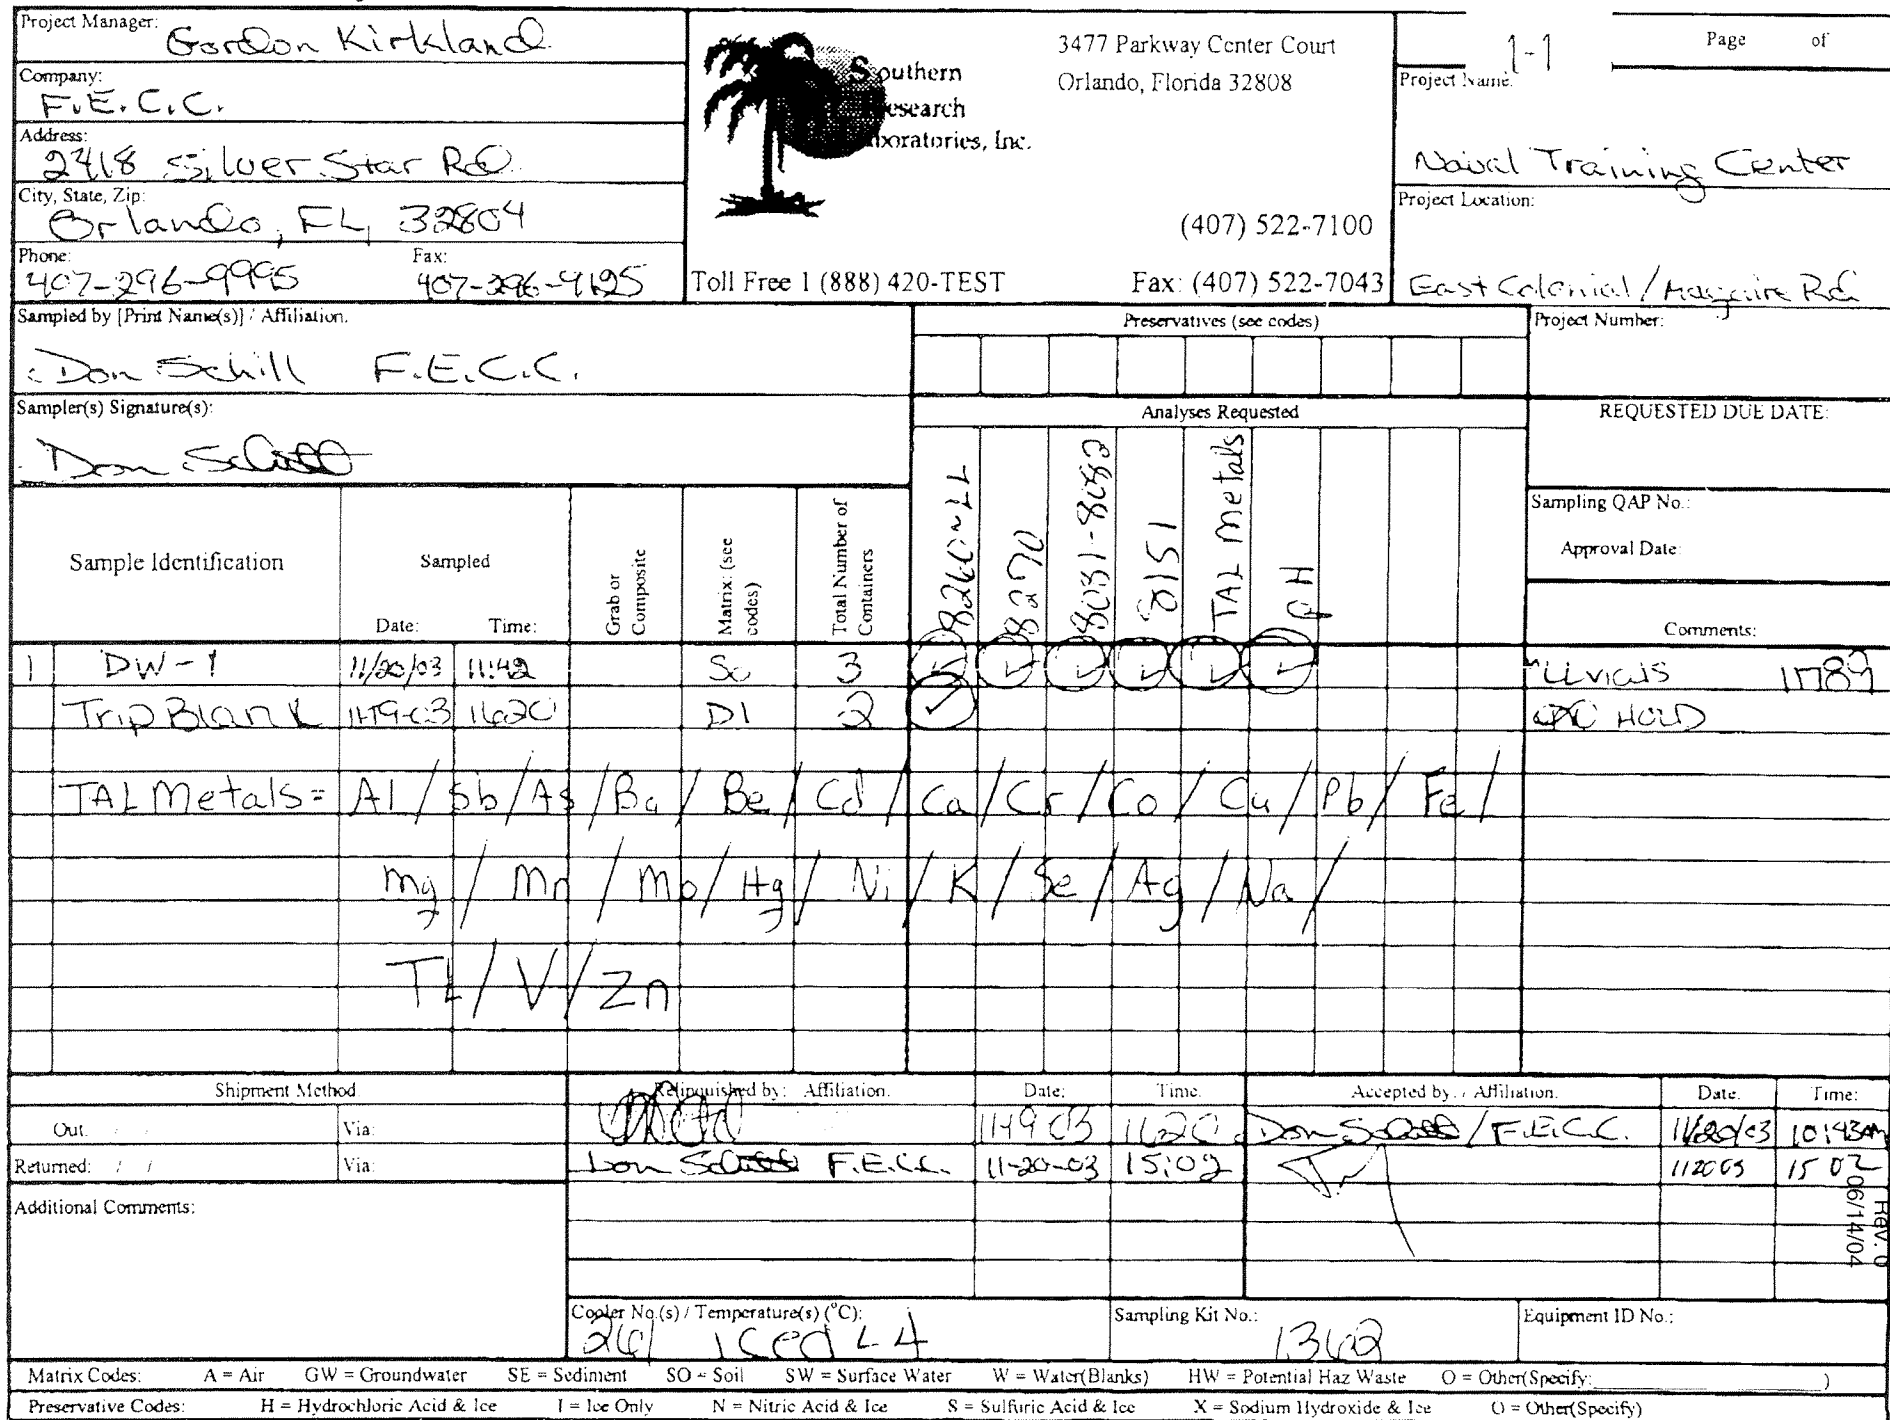 Project Manager: Gordon Kirkland
Company: F.E.C.C.
Address: 2418 Silver Star Rd
City, State, Zip: Orlando, FL 32804
Phone: 407-296-9995 Fax: 407-296-9125
Southern
Research
Laboratories, Inc.
3477 Parkway Center Court
Orlando, Florida 32808
(407) 522-7100
Toll Free 1 (888) 420-TEST Fax: (407) 522-7043
1-1 Page of
Project Name:
Naval Training Center
Project Location:
East Colonial / Maguire Rd
Sampled by [Print Name(s)] / Affiliation:
Don Schill F.E.C.C.
Sampler(s) Signature(s):
Don Schill
Preservatives (see codes)
Analyses Requested
Project Number:
REQUESTED DUE DATE:
Sampling QAP No.:
Approval Date:
Comments:
Sample Identification Sampled
Date: Time:
Grab or Composite
Matrix: (see codes)
Total Number of Containers
8260-LL
8270
8081-8082
8151
TAL Metals
pH
1 DW-1 11/20/03 11:42 SO 3 LL vials 11789
Trip Blank 11-19-03 1620 DI 2 HOLD
TAL Metals = Al / Sb / As / Ba / Be / Cd / Ca / Cr / Co / Cu / Pb / Fe /
Mg / Mn / Mo / Hg / Ni / K / Se / Ag / Na /
TL / V / Zn
Shipment Method Relinquished by: Affiliation. Date: Time: Accepted by: / Affiliation. Date. Time:
Out: / / Via: 11-19-03 1620 Don Schill / F.E.C.C. 11/20/03 10:43am
Returned: / / Via: Don Schill F.E.C.C. 11-20-03 15:02 112003 15 02
Additional Comments:
Rev. 0
06/14/04
Cooler No.(s) / Temperature(s) (°C): Sampling Kit No.: Equipment ID No.:
261 iced L4 1362
Matrix Codes: A = Air GW = Groundwater SE = Sediment SO = Soil SW = Surface Water W = Water(Blanks) HW = Potential Haz Waste O = Other(Specify: )
Preservative Codes: H = Hydrochloric Acid & Ice I = Ice Only N = Nitric Acid & Ice S = Sulfuric Acid & Ice X = Sodium Hydroxide & Ice O = Other(Specify)